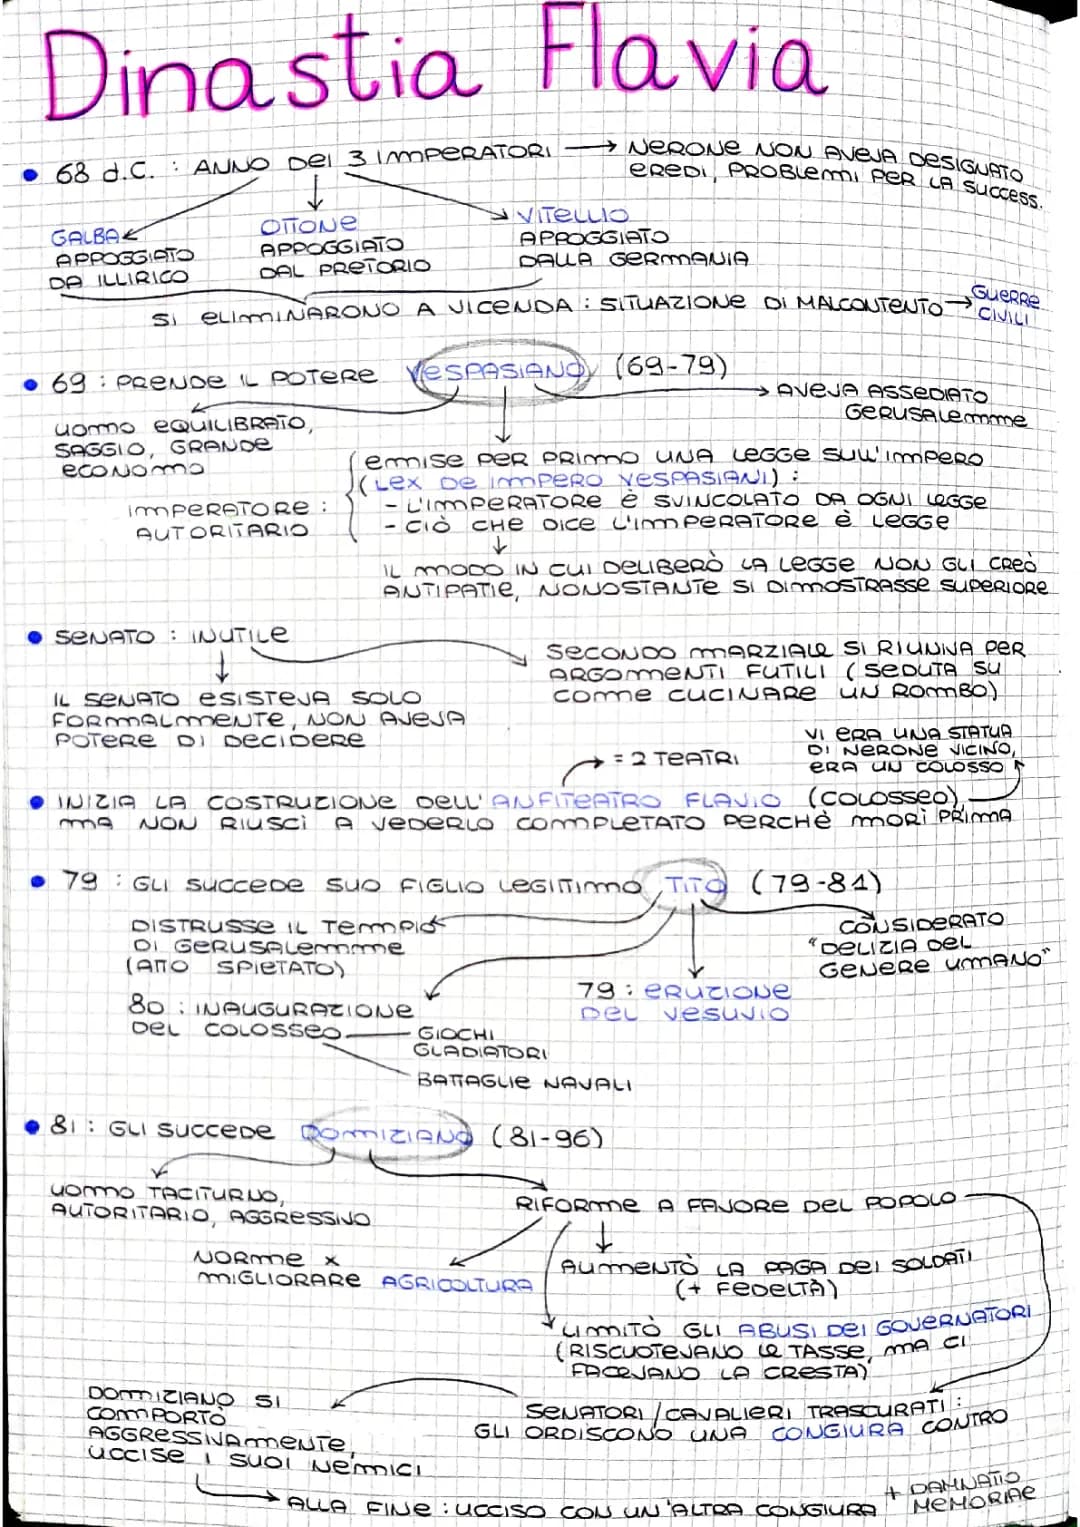 Dinastia Flavia
• 68 d.C. : ANNO DEI 3 IMPERATORI → NERONE NON AVEVA DESIGNATO
EREDI, PROBLEMI PER LA SUCCESS.
GALBA
APPOGGIATO
DA ILLIRICO
OTTONE
APPOGGIATO
DAL PRETORIO
VITELLIO
APPOGGIATO
DALLA GERMANIA
SI ELIMINARONO A VICENDA : SITUAZIONE DI MALCONTENTO → GUERRE
CIVILI
• 69 : PRENDE IL POTERE VESPASIANO (69-79)
AVEVA ASSEDIATO
GERUSALEMME
UOMO EQUILIBRATO,
SAGGIO, GRANDE
ECONOMO
IMPERATORE :
AUTORITARIO
EMISE PER PRIMO UNA LEGGE SULL'IMPERO
(LEX DE IMPERO VESPASIANI) :
- L'IMPERATORE È SVINCOLATO DA OGNI LEGGE
- CIÒ CHE DICE L'IMPERATORE È LEGGE
IL MODO IN CUI DELIBERÒ LA LEGGE NON GLI CREÒ
ANTIPATIE, NONOSTANTE SI DIMOSTRASSE SUPERIORE
• SENATO : INUTILE
SECONDO MARZIALE SI RIUNIVA PER
ARGOMENTI FUTILI (SEDUTA SU
COME CUCINARE UN ROMBO)
IL SENATO ESISTEVA SOLO
FORMALMENTE, NON AVEVA
POTERE DI DECIDERE
= 2 TEATRI
VI ERA UNA STATUA
DI NERONE VICINO,
ERA UN COLOSSO
• INIZIA LA COSTRUZIONE DELL'ANFITEATRO FLAVIO (COLOSSEO),
MA NON RIUSCÌ A VEDERLO COMPLETATO PERCHÈ MORÌ PRIMA
• 79 : GLI SUCCEDE SUO FIGLIO LEGITTIMO TITO (79-81)
DISTRUSSE IL TEMPIO
DI GERUSALEMME
(ATTO SPIETATO)
CONSIDERATO
"DELIZIA DEL
GENERE UMANO"
79 : ERUZIONE
DEL VESUVIO
80 : INAUGURAZIONE
DEL COLOSSEO
GIOCHI
GLADIATORI
BATTAGLIE NAVALI
• 81 : GLI SUCCEDE DOMIZIANO (81-96)
UOMO TACITURNO,
AUTORITARIO, AGGRESSIVO
RIFORME A FAVORE DEL POPOLO
NORME x
MIGLIORARE AGRICOLTURA
AUMENTÒ LA PAGA DEI SOLDATI
(+ FEDELTÀ)
LIMITÒ GLI ABUSI DEI GOVERNATORI
(RISCUOTEVANO LE TASSE, MA CI
FACEVANO LA CRESTA)
SENATORI / CAVALIERI TRASCURATI :
GLI ORDISCONO UNA CONGIURA CONTRO
DOMIZIANO SI
COMPORTÒ
AGGRESSIVAMENTE,
UCCISE I SUOI NEMICI
ALLA FINE : UCCISO CON UN'ALTRA CONGIURA + DAMNATIO
MEMORIAE